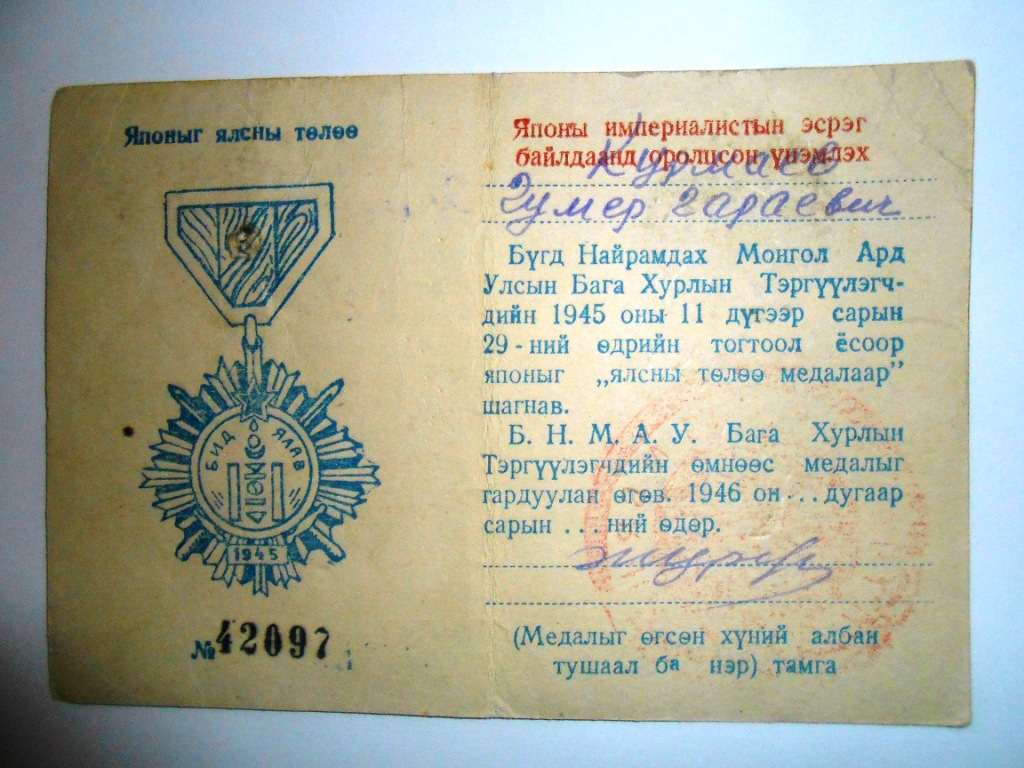 Японыг ялсны төлөө
БИД ЯЛАВ
1945
№ 42097
Японы империалистын эсрэг
байлдаанд оролцсон үнэмлэх
Курмаев
Гумер Гараевич
Бүгд Найрамдах Монгол Ард
Улсын Бага Хурлын Тэргүүлэгч-
дийн 1945 оны 11 дүгээр сарын
29-ний өдрийн тогтоол ёсоор
японыг „ялсны төлөө медалаар”
шагнав.
Б. Н. М. А. У. Бага Хурлын
Тэргүүлэгчдийн өмнөөс медалыг
гардуулан өгөв. 1946 он ... дугаар
сарын ... ний өдөр.
(Медалыг өгсөн хүний албан
тушаал ба нэр) тамга